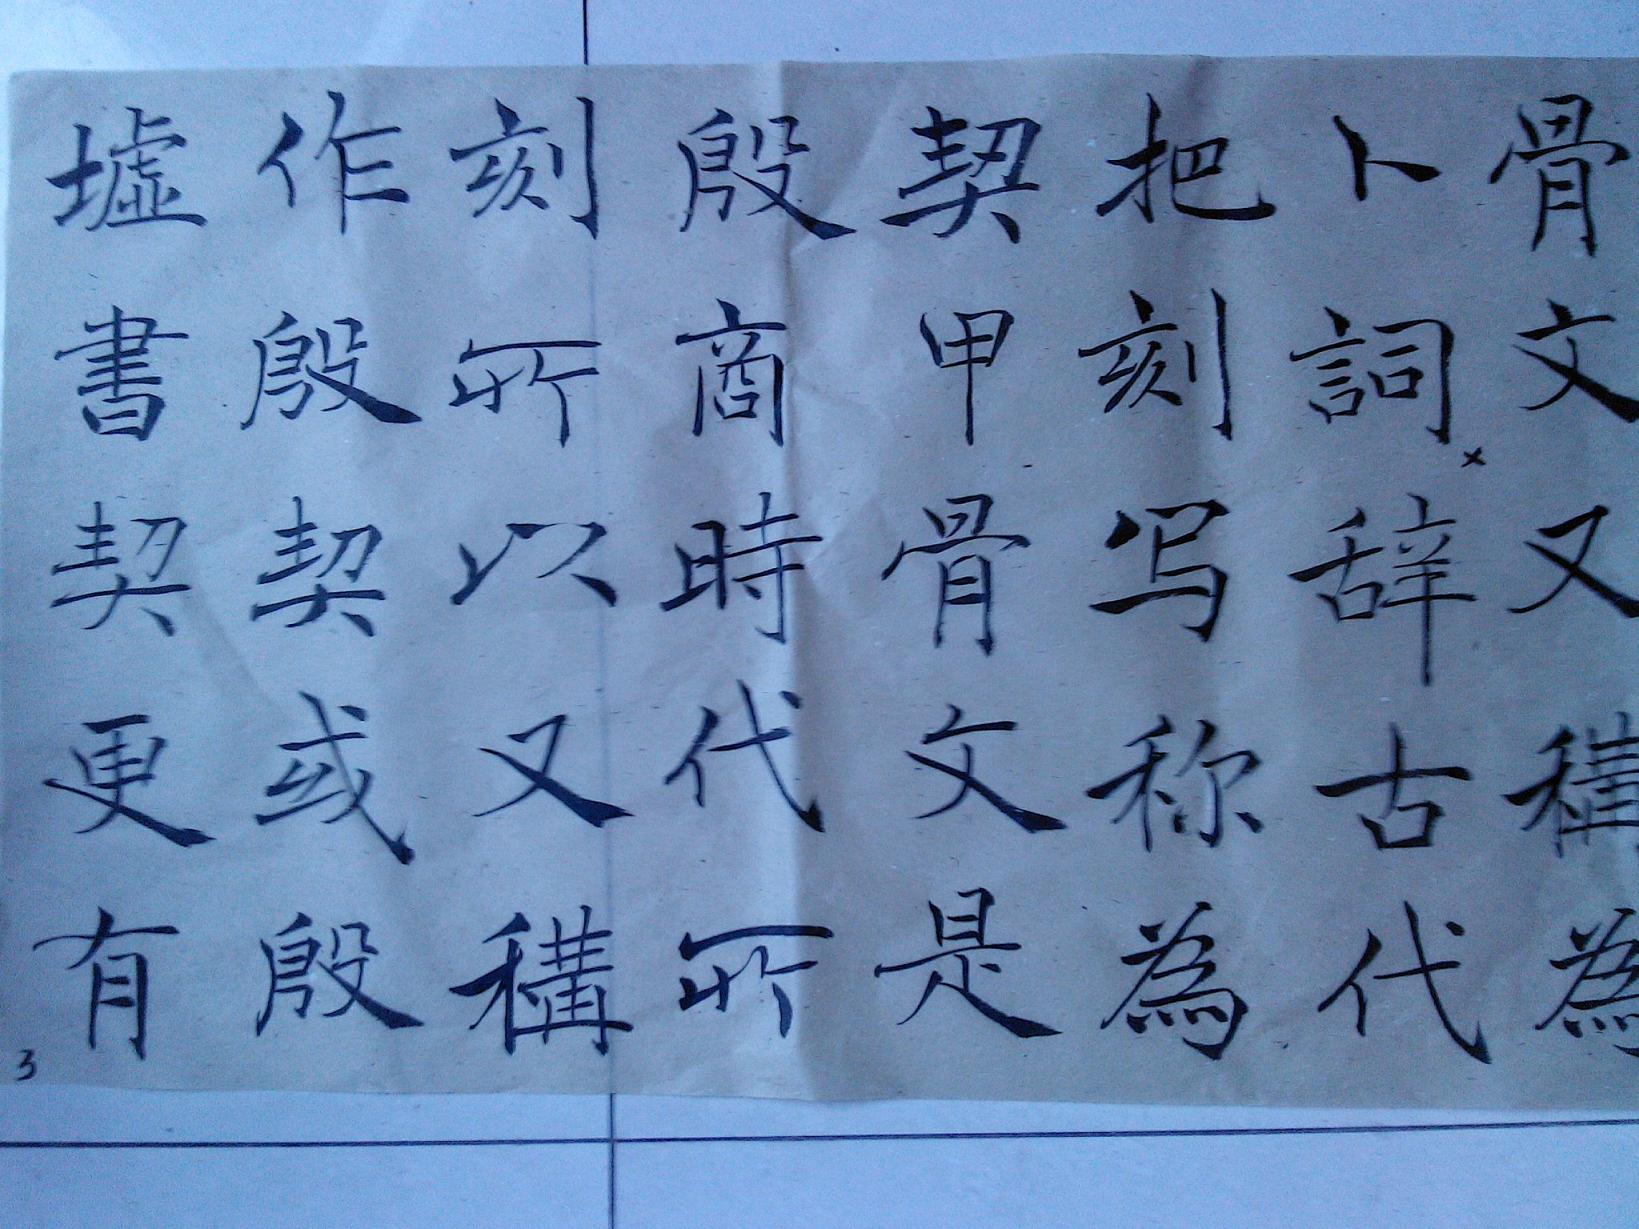 骨文又稱為
卜詞×辞古代
把刻写称為
契甲骨文是
殷商時代所
刻所以又稱
作殷契或殷
墟書契更有
3